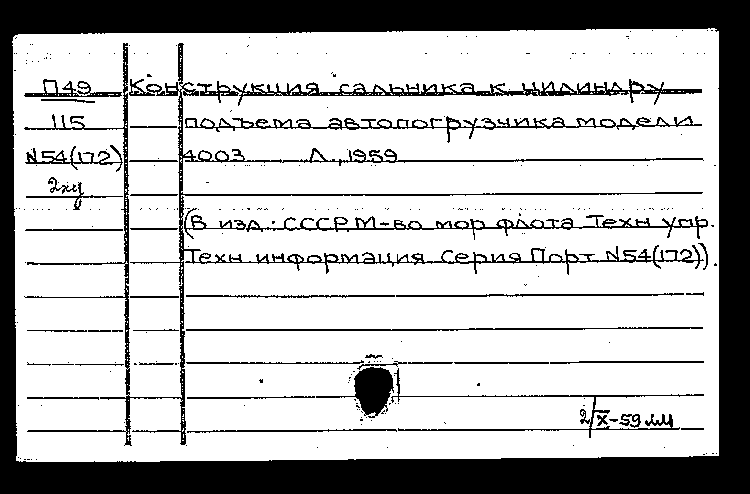 П49 Конструкция сальника к цилиндру
115 подъема автопогрузчика модели
N54(172) 4003 Л., 1959
2хц
(В изд.: СССР. М-во мор флота Техн упр.
Техн информация Серия Порт N54(172)).
2/X-59 мм